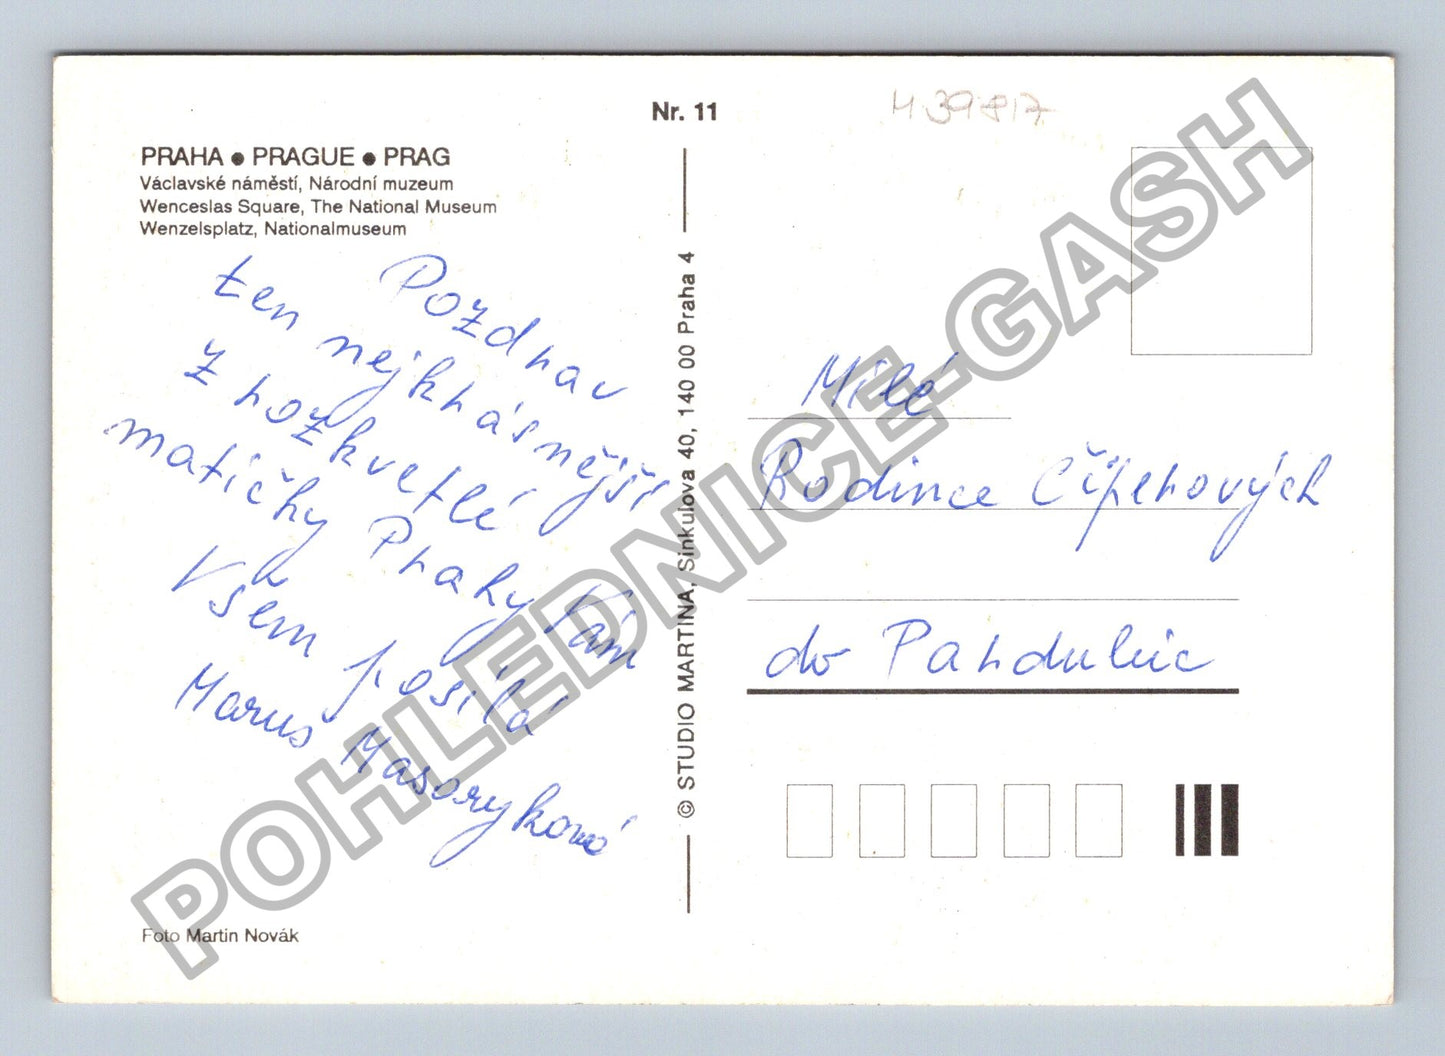 Nr. 11
PRAHA ● PRAGUE ● PRAG
Václavské náměstí, Národní muzeum
Wenceslas Square, The National Museum
Wenzelsplatz, Nationalmuseum
Pozdrav
ten nejkrásnější
z rozkvetlé
matičky Prahy Vám
Všem posílá
Maruš Masaryková
Foto Martin Novák
© STUDIO MARTINA, Sinkulova 40, 140 00 Praha 4
H 39817
Milé
Rodince Čiperových
do Pardubic
POHLEDNICE-GASH